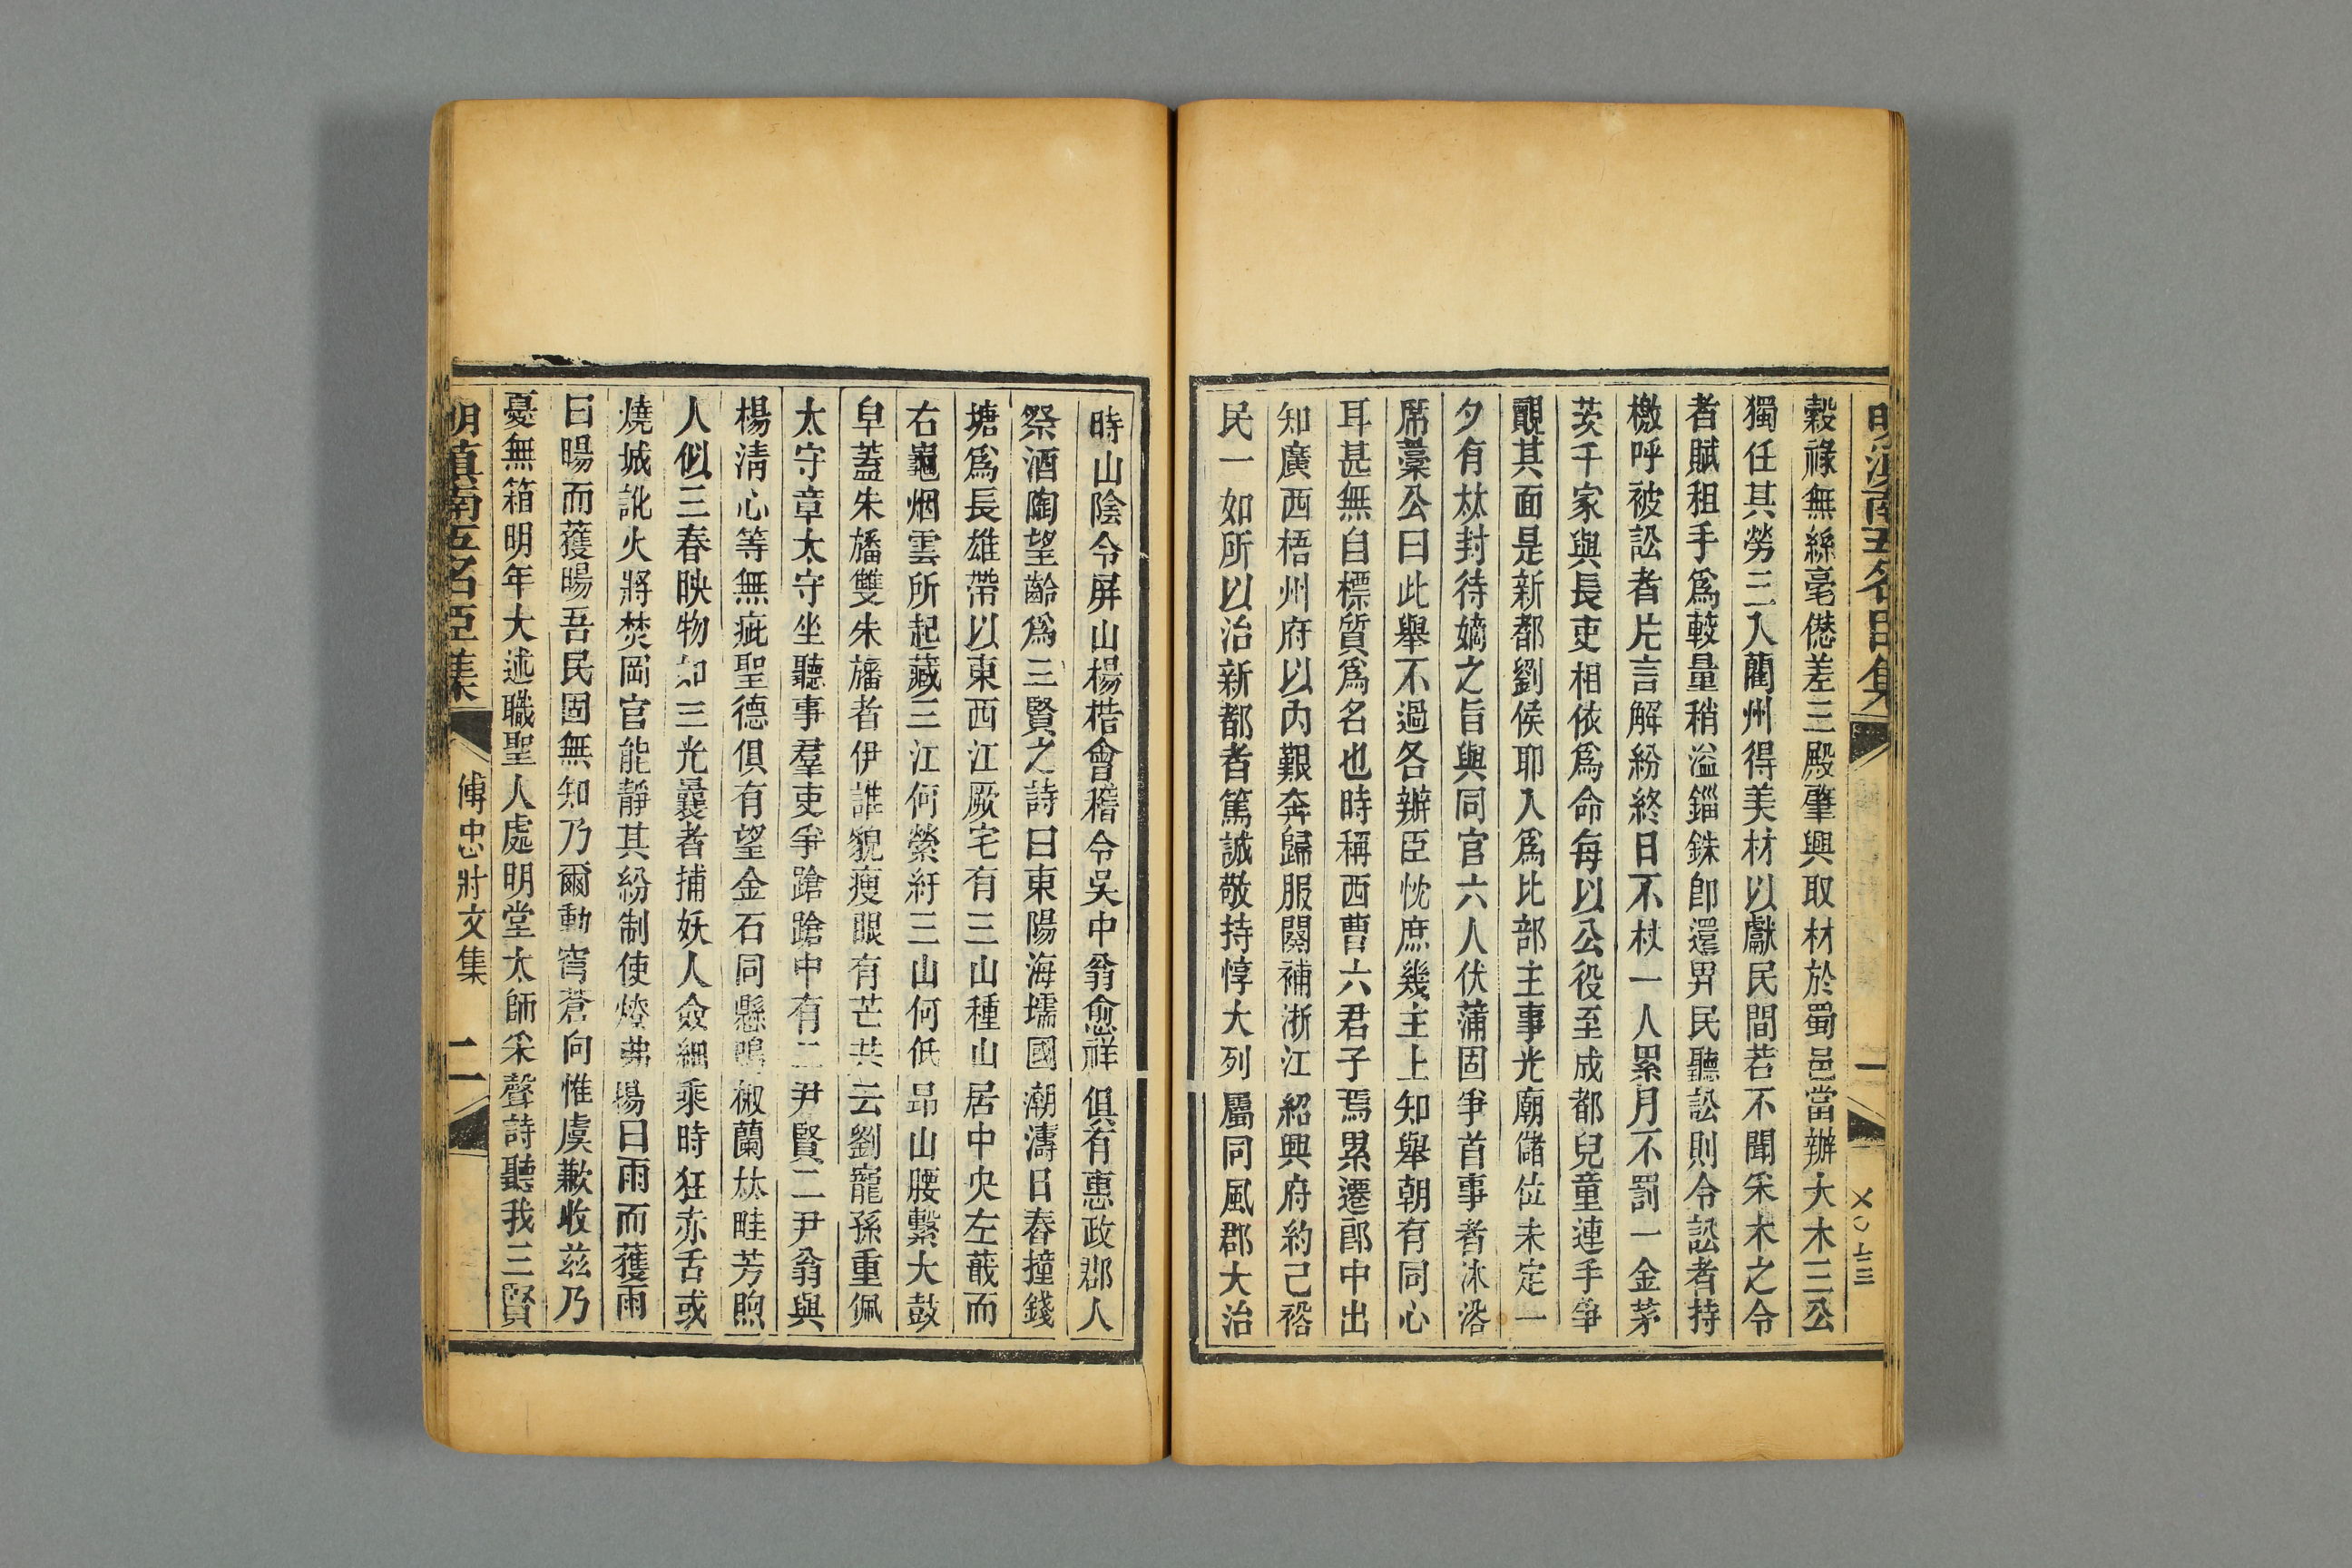 明滇南五名臣集
一
穀祿無絲毫僁差三殿肇興取材於蜀邑當辦大木三公
獨任其勞三入藺州得美材以獻民間若不聞采木之令
者賦租手為較量稍溢錙銖卽還畀民聽訟則令訟者持
檄呼被訟者片言解紛終日不杖一人累月不罰一金茅
茨千家與長吏相依為命每以公役至成都兒童連手爭
覿其面是新都劉侯耶入為比部主事光廟儲位未定一
夕有㭟封待嫡之旨與同官六人伏蒲固爭首事者沐浴
席藁公曰此舉不過各辦臣忱庶幾主上知舉朝有同心
耳甚無自標質為名也時稱西曹六君子焉累遷郎中出
知廣西梧州府以內艱奔歸服闋補浙江紹興府約己裕
民一如所以治新都者篤誠敬持惇大列屬同風郡大治
時山陰令屏山楊楷會稽令吳中翁愈祥俱有惠政郡人
祭酒陶望齡為三賢之詩曰東陽海壖國潮濤日舂撞錢
塘為長雄帶以東西江厥宅有三山種山居中央左蕺而
右龜烟雲所起藏三江何縈紆三山何低昂山腰繫大鼓
皁蓋朱旛雙朱旛者伊誰貌瘦眼有芒共云劉寵孫重佩
太守章太守坐聽事羣吏爭蹌蹌中有二尹賢二尹翁與
楊清心等無疵聖德俱有望金石同懸鳴椒蘭㭟畦芳煦
人似三春映物如三光曩者捕妖人僉細乘時狂赤舌或
燒城訛火將焚岡官能靜其紛制使燎弗揚曰雨而獲雨
曰暘而獲暘吾民固無知乃爾動穹蒼向惟虞歉收茲乃
憂無箱明年大述職聖人處明堂太師采聲詩聽我三賢
明滇南五名臣集
傅忠壯文集
二